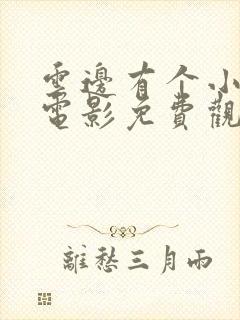 雲邊有个小
電影免費觀
離愁三月雨